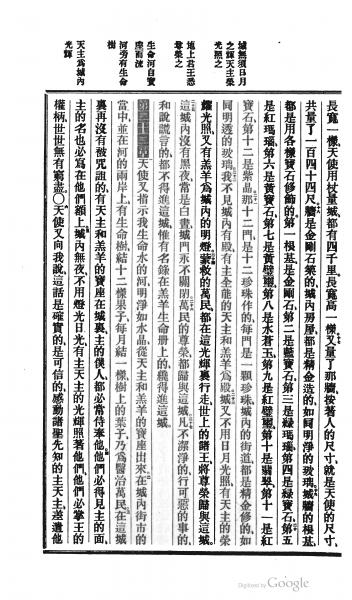 城無須日月
之輝天主榮
光照之
地上君王悉
尊榮之
生命河自寶
座而流
河旁有生命
樹
天主為城內
光輝
長寬一樣天使用杖量城都有四千里長寬高一樣又量了那牆按著人的尺寸就是天使的尺寸
共量了一百四十四尺牆是金剛石築的城內房屋都是精金造的如同明淨的玻璃城牆的根基
都是用各樣寶石修飾的第一根基是金剛石第二是藍寶石第三是綠瑪瑙第四是綠寶石第五
是紅瑪瑙第六是黃寶石第七是黃璧璽第八是水蒼玉第九是紅璧璽第十是翡翠第十一是紅
寶石第十二是紫晶那十二門是十二珍珠作的每門是一顆珍珠城內的街道都是精金修的如
同明透的玻璃我不見城內有殿有主全能的天主和羔羊為殿城又不用日月光照有天主的榮
耀光照又有羔羊為城內的明燈蒙救的萬民都在這光輝裏行走世上的諸王將尊榮歸與這城
這城內沒有黑夜當是白晝城門永不關閉萬民的尊榮都歸與這城凡不潔淨的行可惡的事的
和說謊言的都不得進城惟有名錄在羔羊生命冊上的纔得進這城
第二十二章天使又指示我生命水的河明淨如水晶從天主和羔羊的寶座出來在城內街市的
當中並在河的兩岸上有生命樹結十二樣果子每月結一樣樹上的葉子乃為醫治萬民在這城
裏再沒有被咒詛的有天主和羔羊的寶座在城裏主的僕人都必當侍奉他他們必得見主的面
主的名也必寫在他們額上城內無夜不用燈光日光有主天主的光輝照著他們他們必掌王的
權柄世世無有窮盡○天使又向我說這話是確實的是可信的感動諸聖先知的主天主差遣他
Digitized by Google